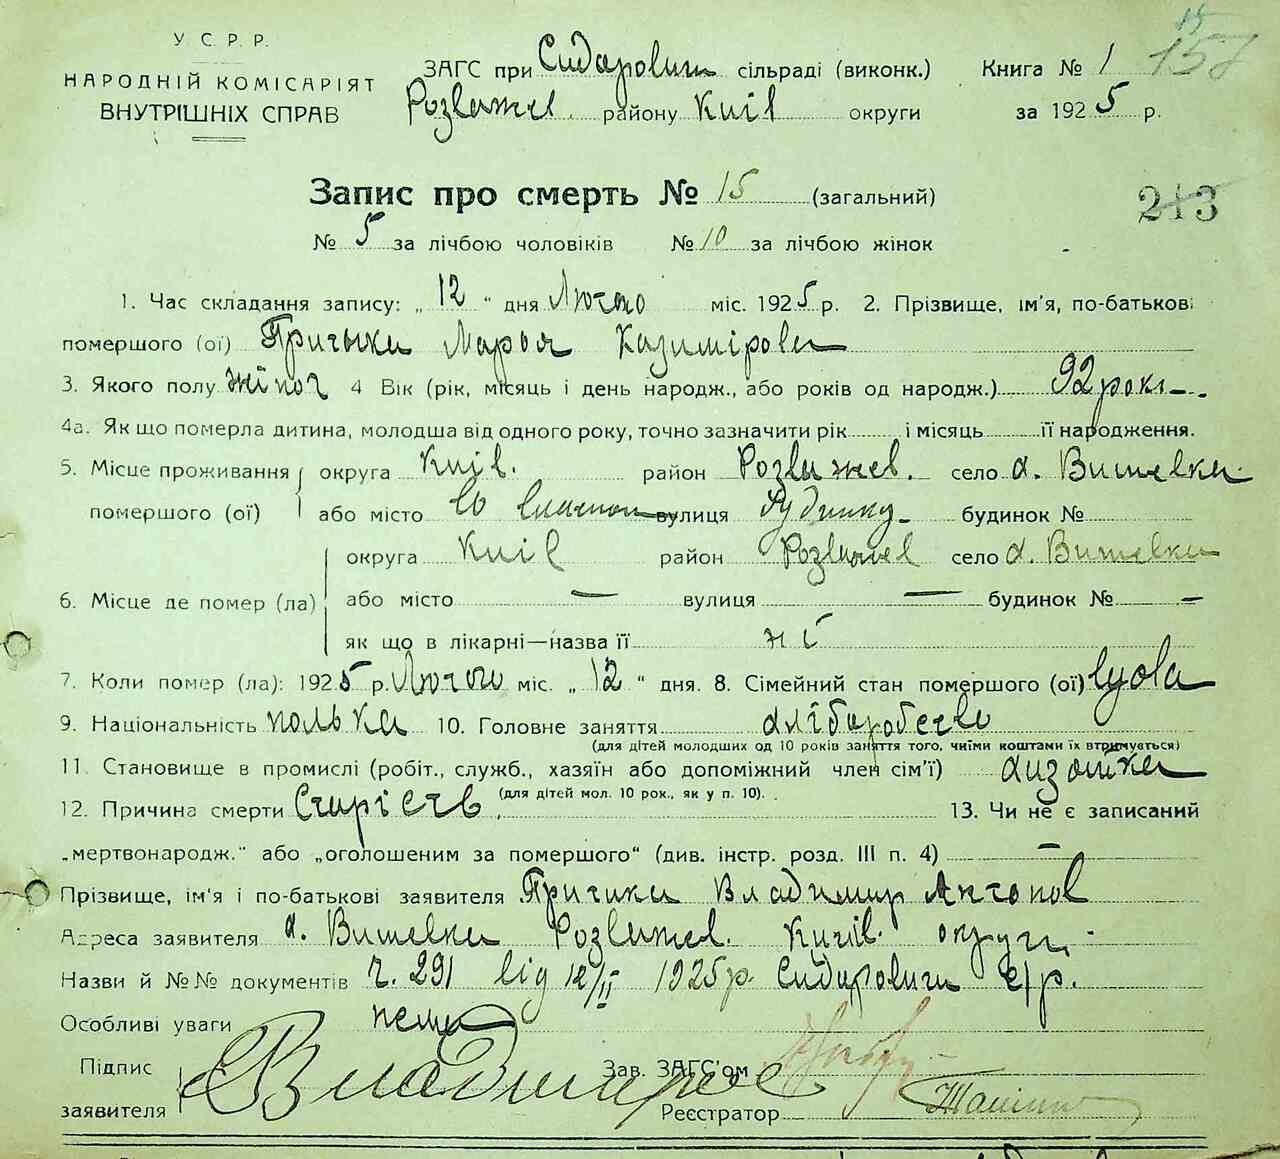 15
157
У. С. Р. Р.
НАРОДНІЙ КОМІСАРІЯТ
ВНУТРІШНІХ СПРАВ
ЗАГС при Сидарович сільраді (виконк.)
Розважев. району Київ округи
Книга № 1
за 1925 р.
Запис про смерть № 15 (загальний)
213
№ 5 за лічбою чоловіків № 10 за лічбою жінок
1. Час складання запису: „12“ дня Лютого міс. 1925 р. 2. Прізвище, ім'я, по-батькові
помершого (ої) Марья Казимірова
3. Якого полу жіноч 4 Вік (рік, місяць і день народж., або років од народж.) 92 рокі
4а. Як що померла дитина, молодша від одного року, точно зазначити рік і місяць її народження.
5. Місце проживання помершого (ої) округа Київ. район Розважев. село
або місто вулиця будинок №
6. Місце де помер (ла) округа Київ район Розважев село
або місто — вулиця — будинок № —
як що в лікарні—назва її ні
7. Коли помер (ла): 1925 р. Лютого міс. „12“ дня. 8. Сімейний стан помершого (ої) вдова
9. Національність полька 10. Головне заняття хліборобство
(для дітей молодших од 10 років заняття того, чиїми коштами їх втримується)
11. Становище в промислі (робіт., служб., хазяїн або допоміжний член сім'ї) хазяйка
(для дітей мол. 10 рок., як у п. 10).
12. Причина смерти Старість 13. Чи не є записаний
„мертвонародж.“ або „оголошеним за помершого“ (див. інстр. розд. III п. 4) —
Прізвище, ім'я і по-батькові заявителя Владимир Антонов
Адреса заявителя Розважев. Київ. округи
Назви й №№ документів ч. 291 від 12/II 1925 р. Сидарович с/р.
Особливі уваги нема
Підпис заявителя
Зав. ЗАГС'ом
Реєстратор